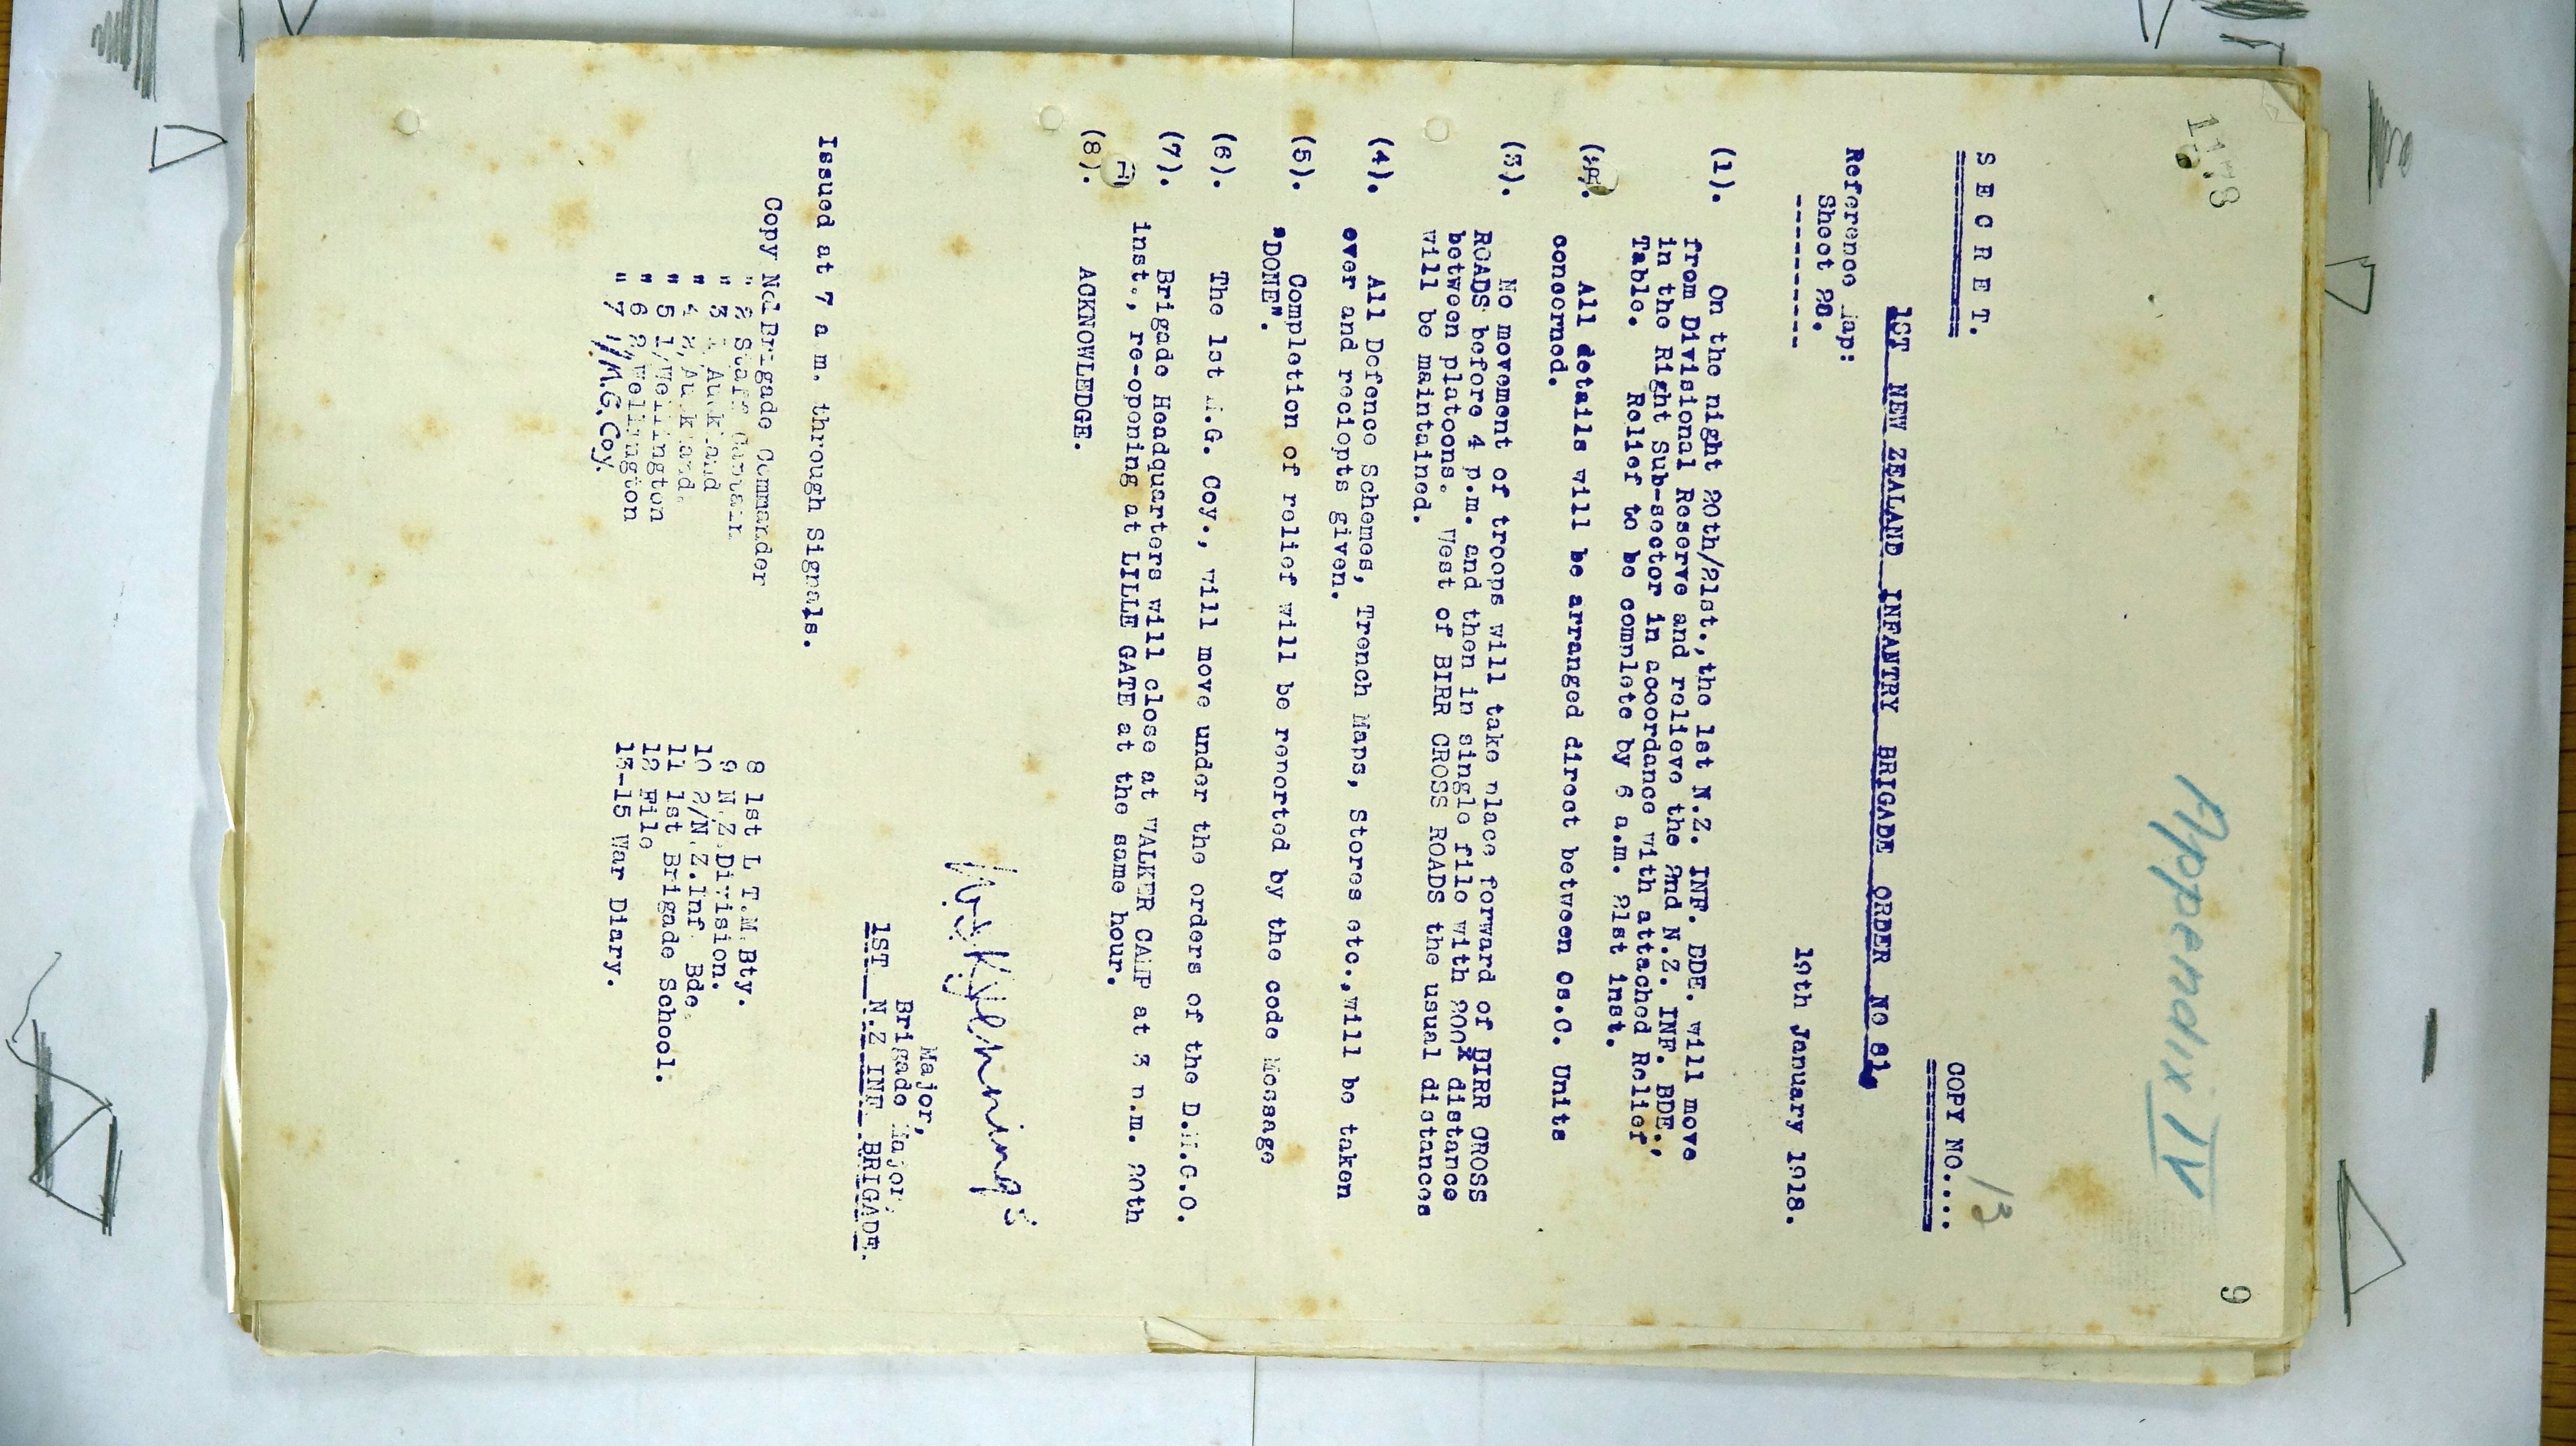 Appendix IV
9
1178
13
S E C R E T.
COPY NO.....
1ST NEW ZEALAND INFANTRY BRIGADE ORDER NO 81.
Reference Map:
Sheet 28.
19th January 1918.
(1). On the night 20th/21st., the 1st N.Z. INF. BDE. will move
from Divisional Reserve and relieve the 2nd N.Z. INF. BDE.,
in the Right Sub-sector in accordance with attached Relief
Table. Relief to be complete by 6 a.m. 21st inst.
(2). All details will be arranged direct between Os.C. Units
concerned.
(3). No movement of troops will take place forward of BIRR CROSS
ROADS before 4 p.m. and then in single file with 200x distance
between platoons. West of BIRR CROSS ROADS the usual distances
will be maintained.
(4). All Defence Schemes, Trench Maps, Stores etc., will be taken
over and reciepts given.
(5). Completion of relief will be reported by the code Message
"DONE".
(6). The 1st M.G. Coy., will move under the orders of the D.M.G.O.
(7). Brigade Headquarters will close at WALKER CAMP at 3 p.m. 20th
inst., re-opening at LILLE GATE at the same hour.
(8). ACKNOWLEDGE.
Major,
Brigade Major,
1ST N.Z INF BRIGADE.
Issued at 7 a m. through Signals.
Copy No 1 Brigade Commander
" 2 Staff Captain
" 3 1, Auckland
" 4 2, Auckland.
" 5 1/Wellington
" 6 2/Wellington
" 7 1/M.G. Coy.
8 1st L T.M. Bty.
9 N.Z.Division.
10 2/N.Z.Inf Bde.
11 1st Brigade School.
12 File
13-15 War Diary.